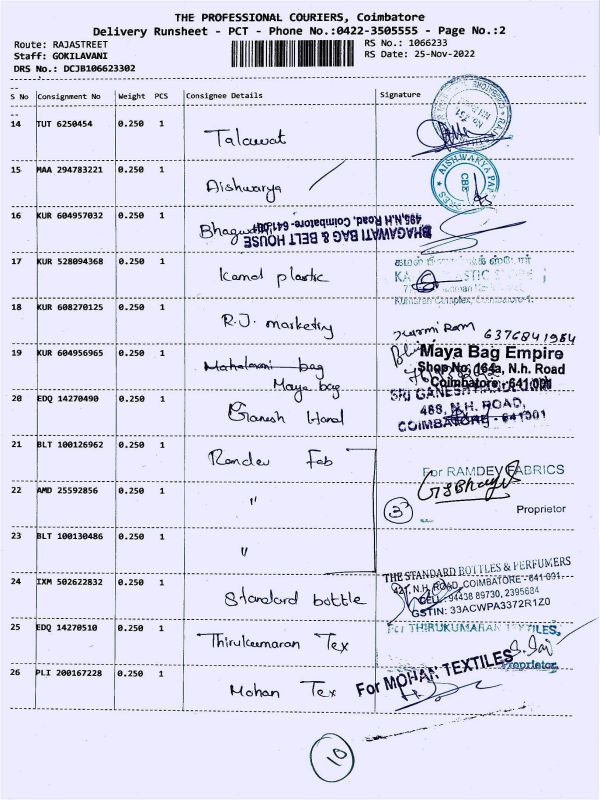 THE PROFESSIONAL COURIERS, Coimbatore
Delivery Runsheet - PCT - Phone No.:0422-3505555 - Page No.:2
Route: RAJASTREET
RS No.: 1066233
Staff: GOKILAVANI
RS Date: 25-Nov-2022
DRS No.: DCJB106623302
S No Consignment No Weight PCS Consignee Details Signature
14 TUT 6250454 0.250 1 Talawat
15 MAA 294783221 0.250 1 Aishwarya
AISHWARYA
CBE
16 KUR 604957032 0.250 1
BHAGAWATI BAG & BELT HOUSE
495,N.H Road, Coimbatore- 641 001
17 KUR 528094368 0.250 1 Kamal plastic
18 KUR 608270125 0.250 1 R.J. marketry
6376841984
19 KUR 604956965 0.250 1 Mahalaxmi bag
Maya bag
Maya Bag Empire
Shop No. 164a, N.h. Road
Coimbatore - 641 001
20 EDQ 14270490 0.250 1 Ganesh Hand
SRI GANESH
488, N.H. ROAD,
COIMBATORE - 641001
21 BLT 100126962 0.250 1 Ramdev Fab
For RAMDEV FABRICS
22 AMD 25592856 0.250 1 "
3
Proprietor
23 BLT 100130486 0.250 1 "
24 IXM 502622832 0.250 1 Standard bottle
THE STANDARD BOTTLES & PERFUMERS
427, N.H. ROAD, COIMBATORE - 641 001.
CELL: 94438 89730, 2395684
GSTIN: 33ACWPA3372R1Z0
25 EDQ 14270510 0.250 1 Thirukumaran Tex
For THIRUKUMARAN TEXTILES,
Proprietor
26 PLI 200167228 0.250 1 Mohan Tex
For MOHAN TEXTILES
10